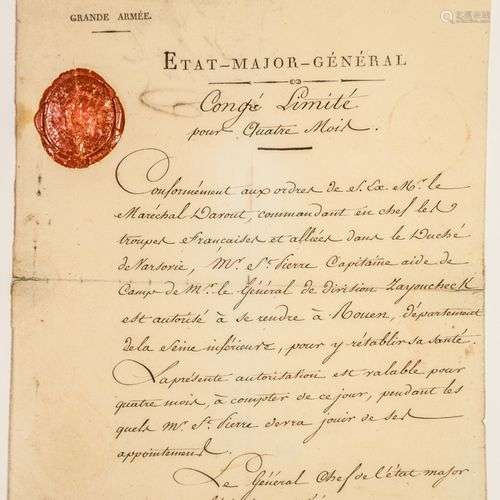 GRANDE ARMÉE.
ETAT-MAJOR-GÉNÉRAL
Congé Limité
pour Quatre Mois.
Conformément aux ordres de S. Ex. Mr. le
Maréchal Davout, commandant en chef les
troupes françaises et alliées dans le Duché
de Varsovie, Mr. St. Pierre Capitaine aide de
Camp de Mr. le Général de division Zayoucheck
est autorisé à se rendre à Rouen, département
de la Seine inférieure, pour y rétablir sa santé.
La présente autorisation est valable pour
quatre mois, à compter de ce jour, pendant les
quels Mr. St. Pierre devra jouir de ses
appointemens.
Le Général Chef de l'état major